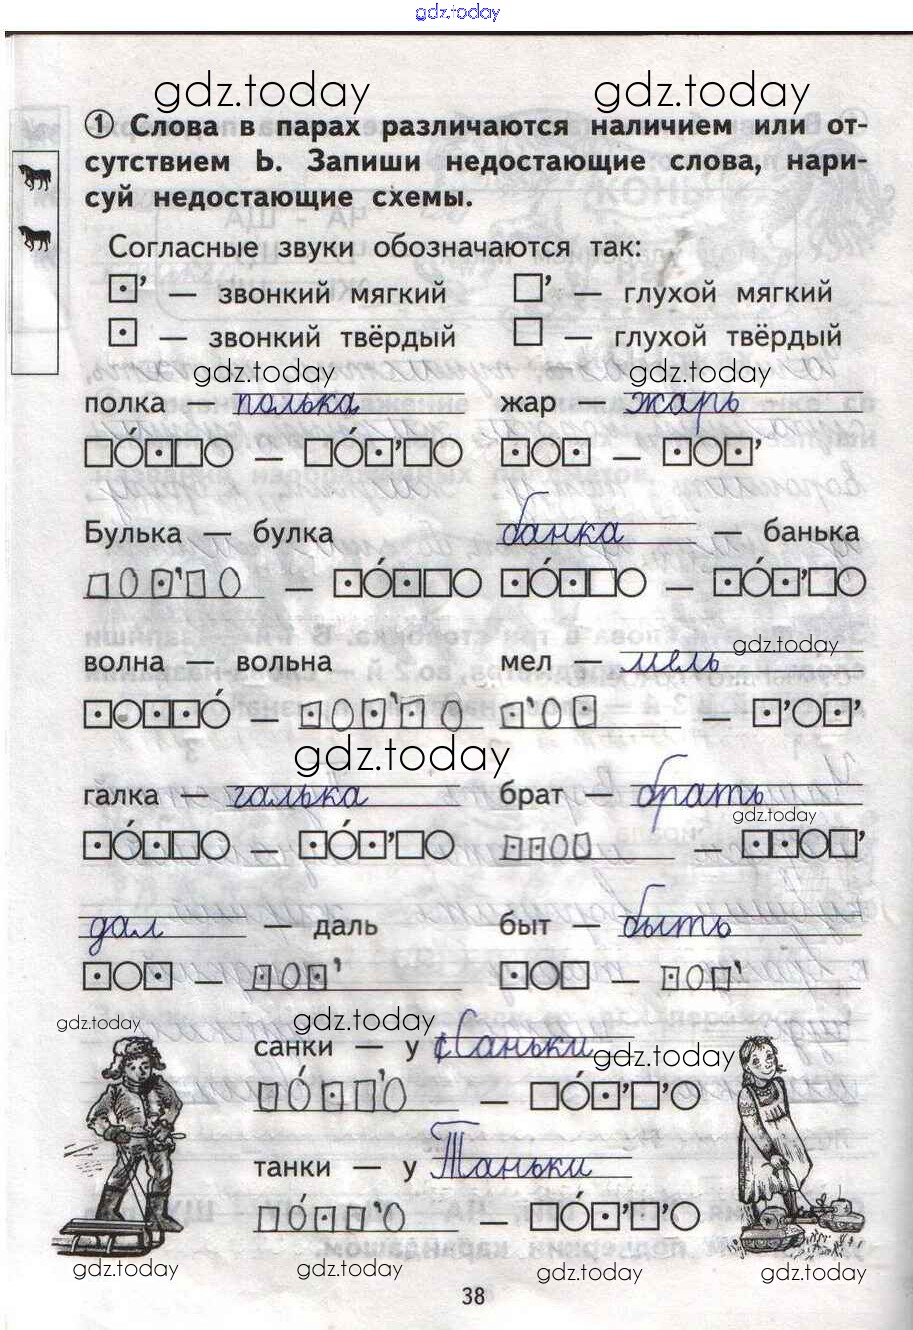 gdz.today
gdz.today gdz.today
1 Слова в парах различаются наличием или от-
сутствием Ь. Запиши недостающие слова, нари-
суй недостающие схемы.
Согласные звуки обозначаются так:
’ — звонкий мягкий ’ — глухой мягкий
— звонкий твёрдый — глухой твёрдый
gdz.today gdz.today
полка — полька жар — жарь
Булька — булка банка — банька
gdz.today
волна — вольна мел — мель
gdz.today
галка — галька брат — брать
gdz.today
дал — даль быт — быть
gdz.today gdz.today
санки — у Саньки
gdz.today
танки — у Таньки
gdz.today gdz.today gdz.today gdz.today
38